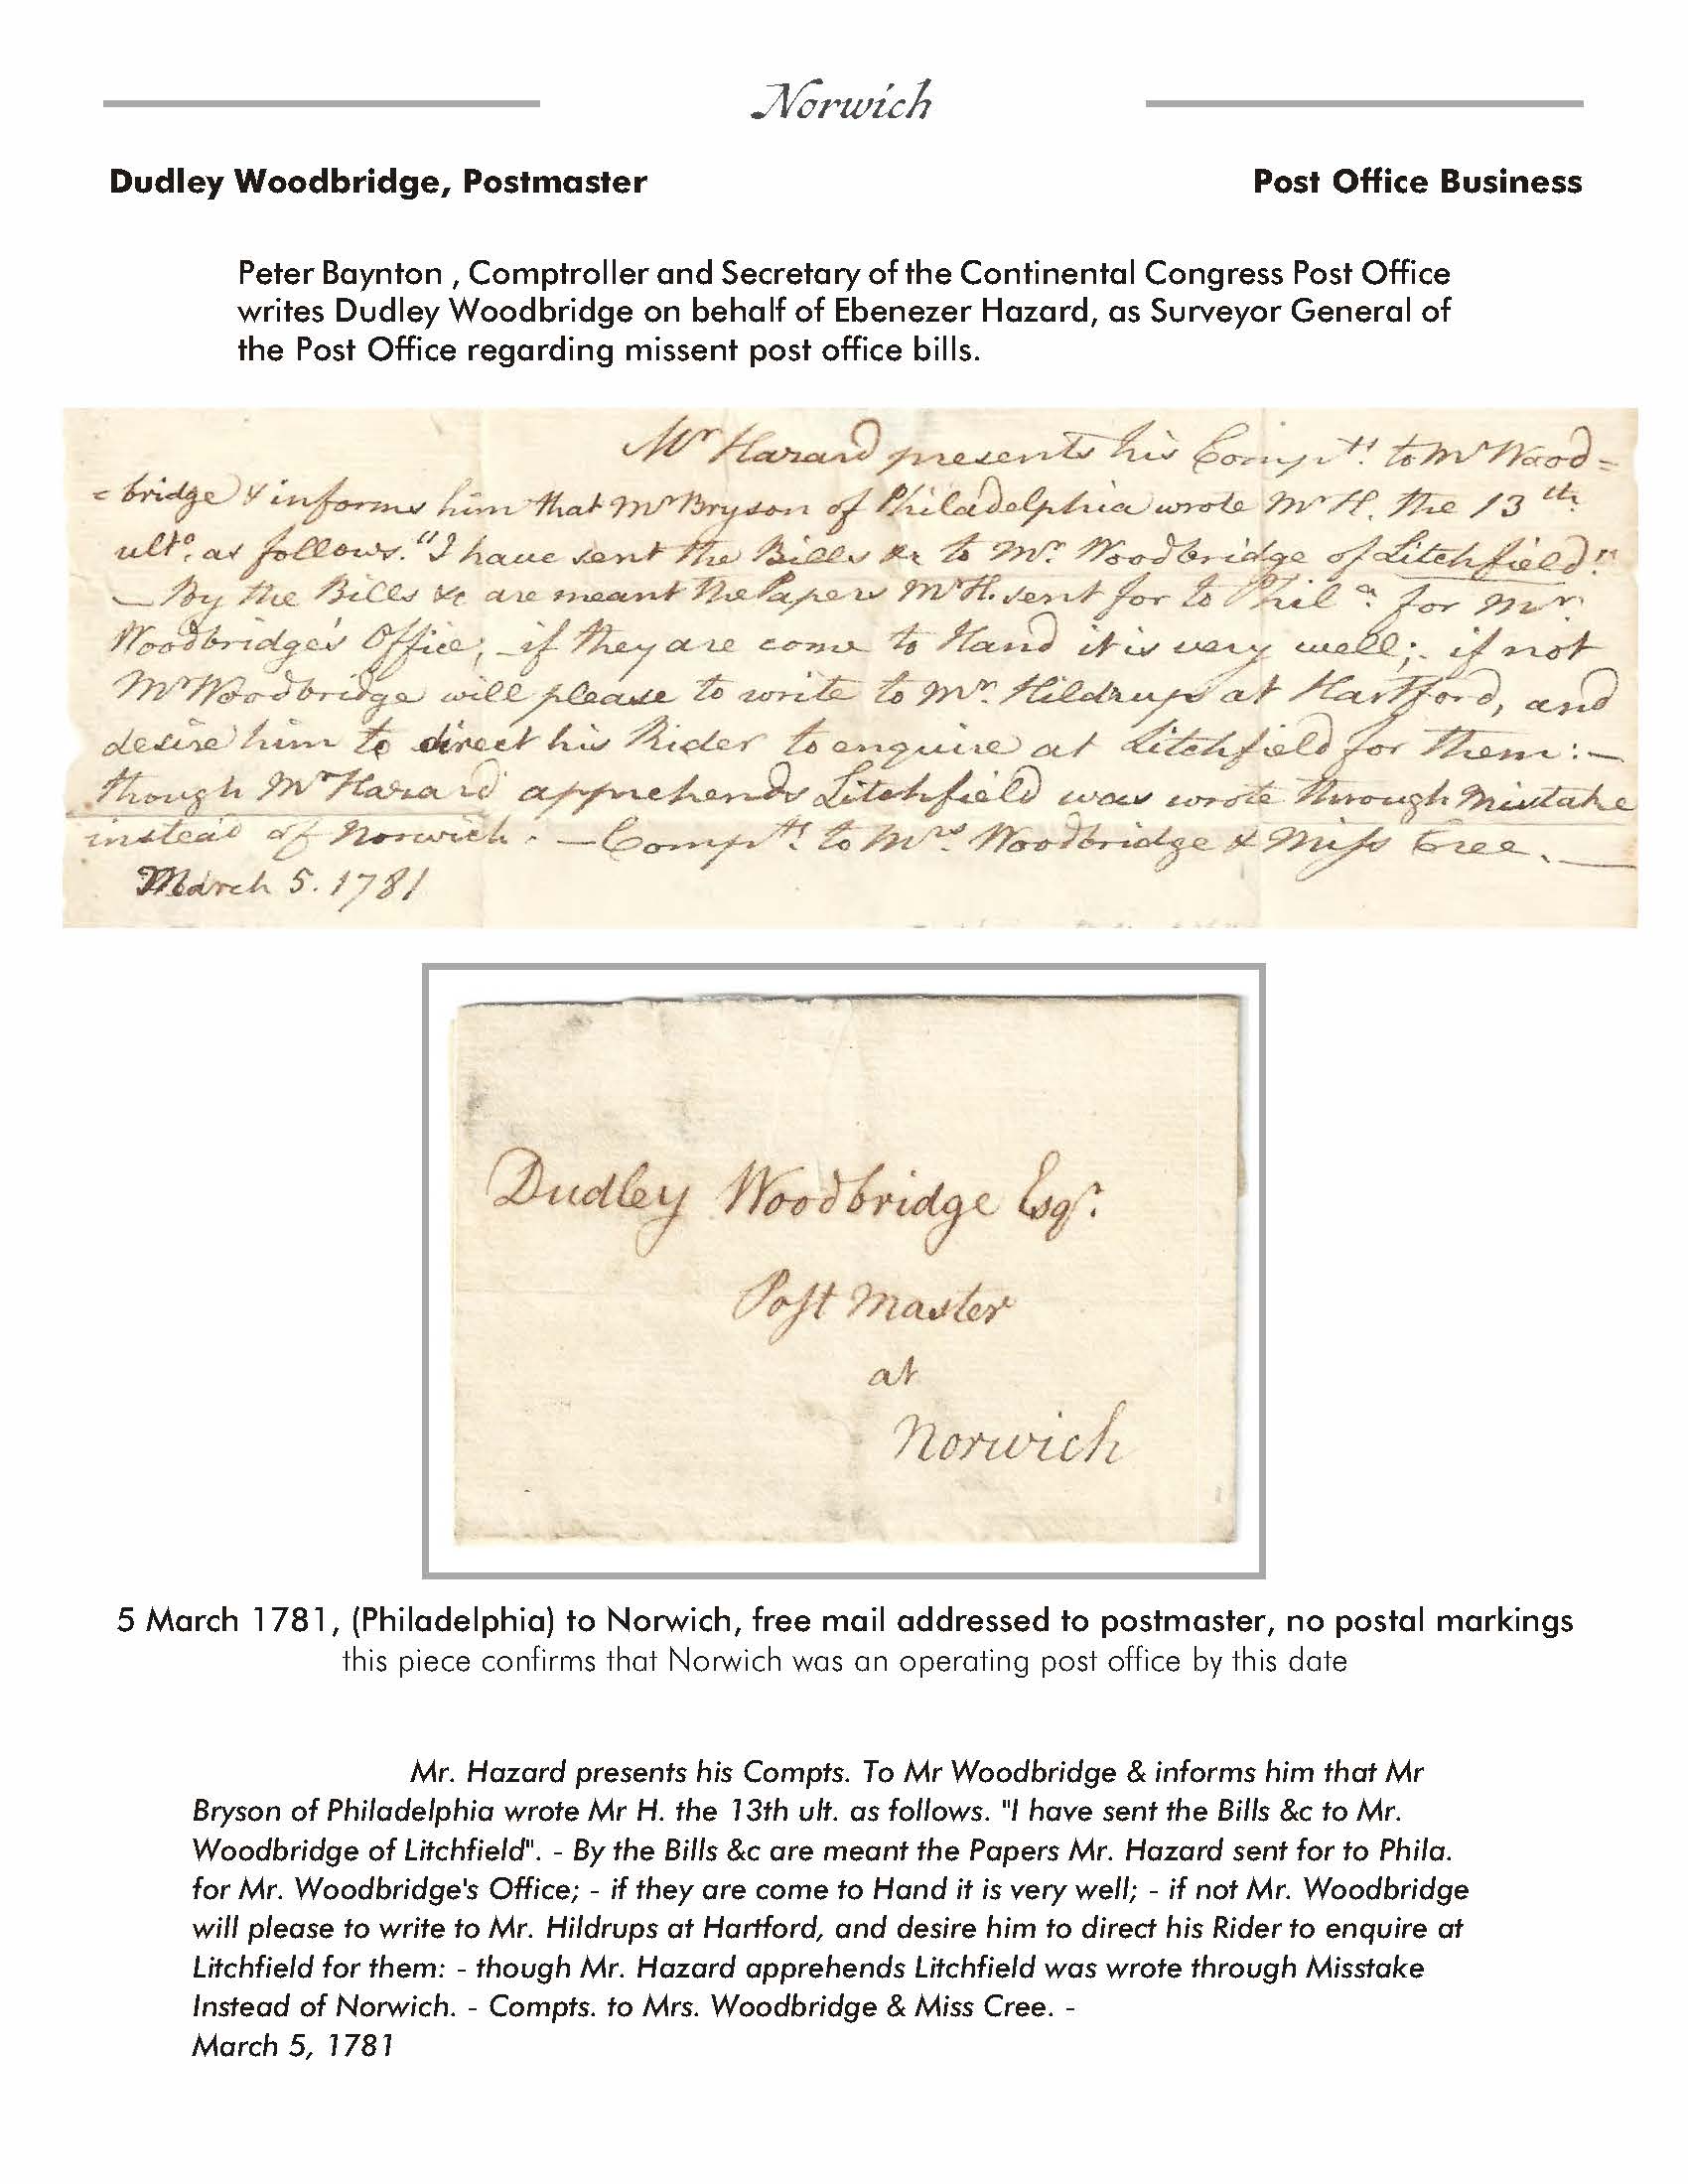 Norwich
Dudley Woodbridge, Postmaster
Post Office Business
Peter Baynton , Comptroller and Secretary of the Continental Congress Post Office
writes Dudley Woodbridge on behalf of Ebenezer Hazard, as Surveyor General of
the Post Office regarding missent post office bills.
Mr Hazard presents his Compts. to Mr Wood=
=bridge & informs him that Mr Bryson of Philadelphia wrote Mr H. the 13th.
ulto. as follows. "I have sent the Bills &c to Mr. Woodbridge of Litchfield."
— By the Bills &c are meant the Papers Mr H. sent for to Phila. for Mr.
Woodbridge's Office; – if they are come to Hand it is very well; – if not
Mr Woodbridge will please to write to Mr. Hildrups at Hartford, and
desire him to direct his Rider to enquire at Litchfield for them: —
though Mr Hazard apprehends Litchfield was wrote through Mistake
instead of Norwich. — Compts. to Mrs. Woodbridge & Miss Cree. —
March 5. 1781
Dudley Woodbridge Esqr.
Post Master
at
Norwich
5 March 1781, (Philadelphia) to Norwich, free mail addressed to postmaster, no postal markings
this piece confirms that Norwich was an operating post office by this date
Mr. Hazard presents his Compts. To Mr Woodbridge & informs him that Mr
Bryson of Philadelphia wrote Mr H. the 13th ult. as follows. "I have sent the Bills &c to Mr.
Woodbridge of Litchfield". - By the Bills &c are meant the Papers Mr. Hazard sent for to Phila.
for Mr. Woodbridge's Office; - if they are come to Hand it is very well; - if not Mr. Woodbridge
will please to write to Mr. Hildrups at Hartford, and desire him to direct his Rider to enquire at
Litchfield for them: - though Mr. Hazard apprehends Litchfield was wrote through Misstake
Instead of Norwich. - Compts. to Mrs. Woodbridge & Miss Cree. -
March 5, 1781